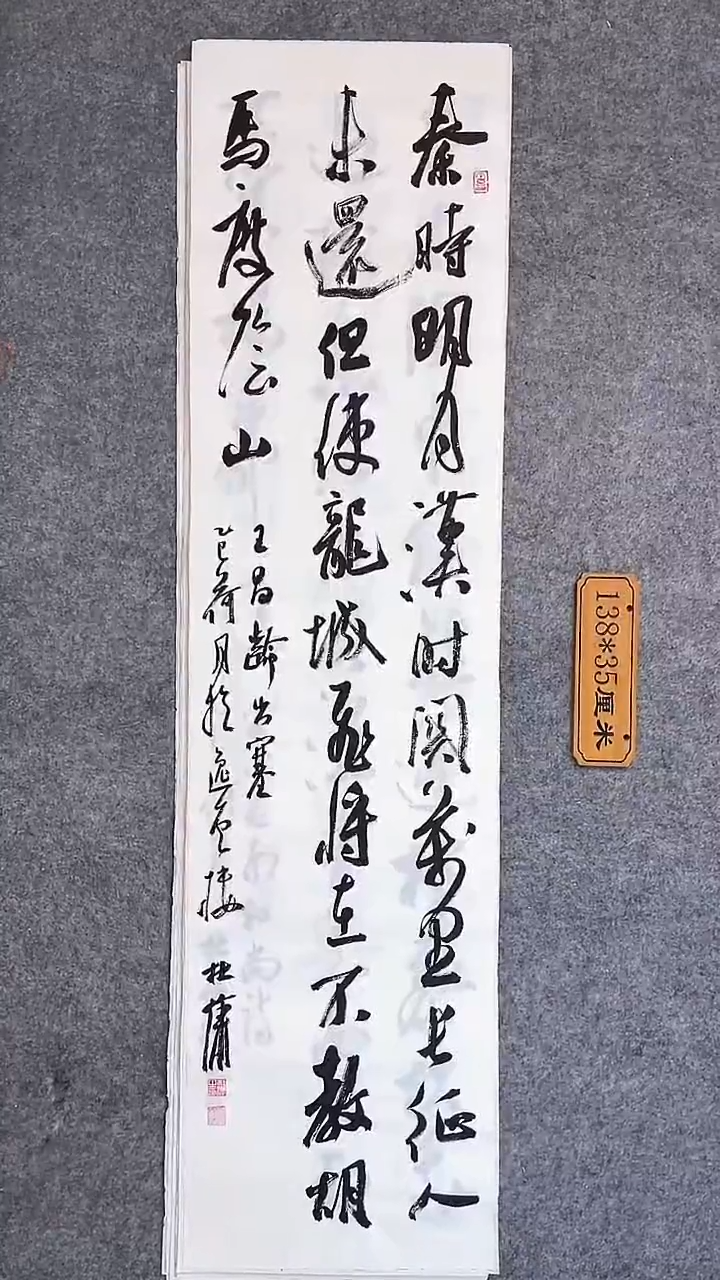 秦時明月漢时関萬里长征人
未還但使龍城飛將在不教胡
馬度陰山
王昌齡出塞
乙巳荷月於逸仙樓 杜蒲
138*35厘米